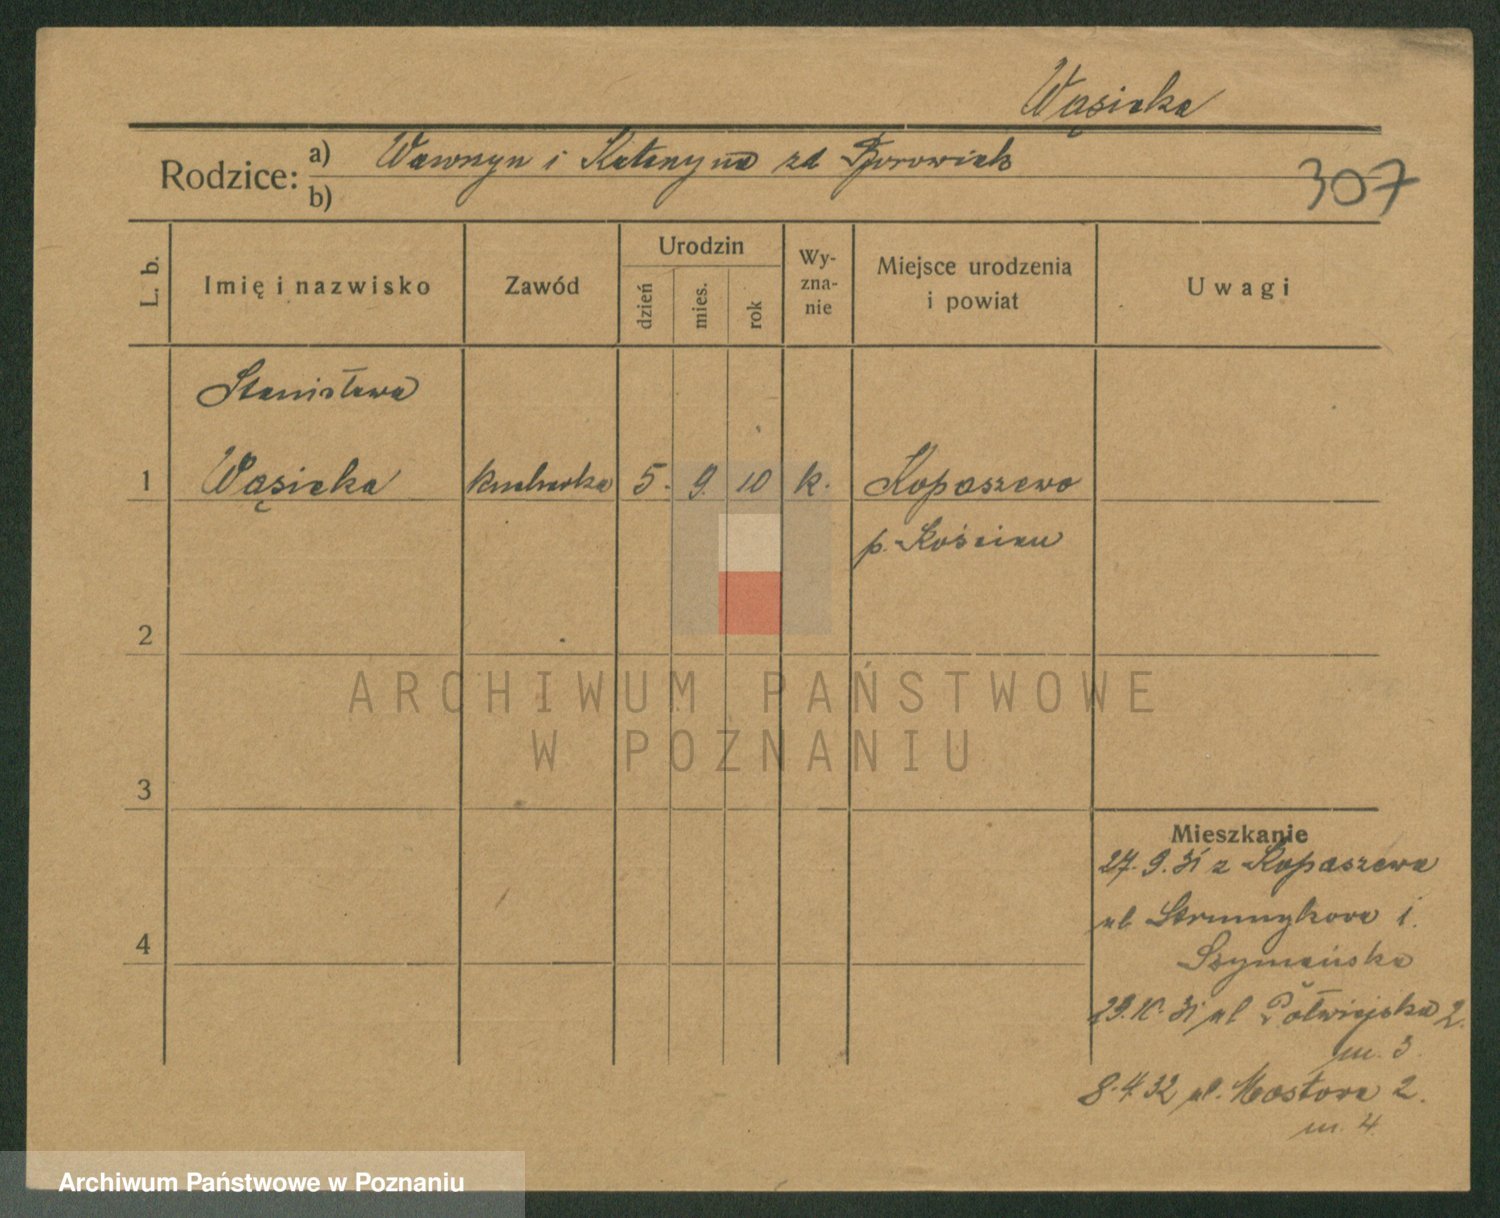 Wąsicka
Rodzice: a) Wawrzyn i Katarzyna zd Borowiak
307
b)
L. b. Imię i nazwisko Zawód Urodzin dzień mies. rok Wy-zna-nie Miejsce urodzenia i powiat Uwagi
Stanisława
1 Wąsicka kucharka 5. 9. 10 k. Kopaszewo
p. Kościan
2
ARCHIWUM PAŃSTWOWE
W POZNANIU
3
Mieszkanie
27. 9. 31 z Kopaszewa
ul. 1.
4
Szymańska
29. 31 ul Półwiejska 2.
m. 3.
8. 4. 32 ul. Mostowa 2.
m. 4.
Archiwum Państwowe w Poznaniu